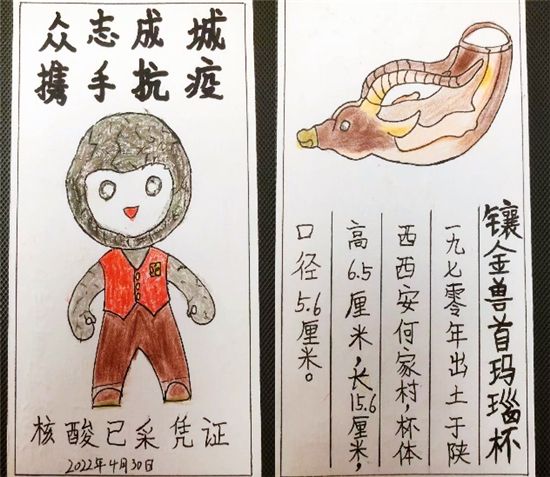 众志成城
携手抗疫
核酸已采凭证
2022年4月30日
镶金兽首玛瑙杯
一九七零年出土于陕
西西安何家村,杯体
高6.5厘米,长15.6厘米,
口径5.6厘米。